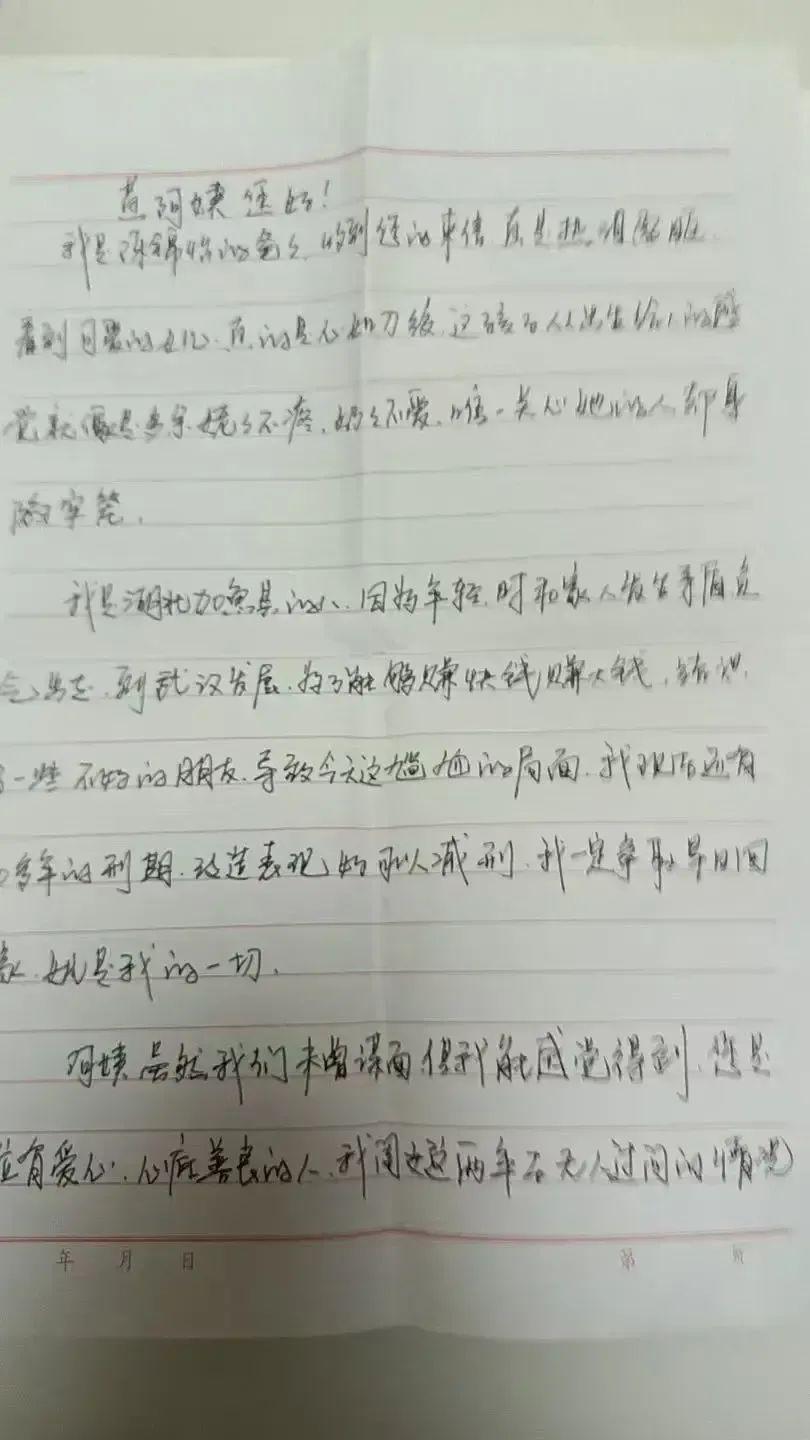 阿姨您好!
我是陈锦怡的爸爸,收到您的来信真是热泪盈眶.
看到可爱的女儿,真的是心如刀绞,这孩子从出生给人的感
觉就像是多余,姥姥不疼,奶奶不爱,唯一关心她的人却身
陷牢笼.
我是湖北加鱼县的人,因为年轻时和家人发生矛盾负
气出走,到武汉发展,为了能够赚快钱赚大钱,结识
一些不好的朋友,导致今天这尴尬的局面,我现在还有
多年的刑期,改造表现好可以减刑,我一定争取早日回
家,女儿是我的一切.
阿姨虽然我们未曾谋面但我能感觉得到,您是
位有爱心,心底善良的人,我闺女这两年在无人过问的情况
年 月 日
第 页